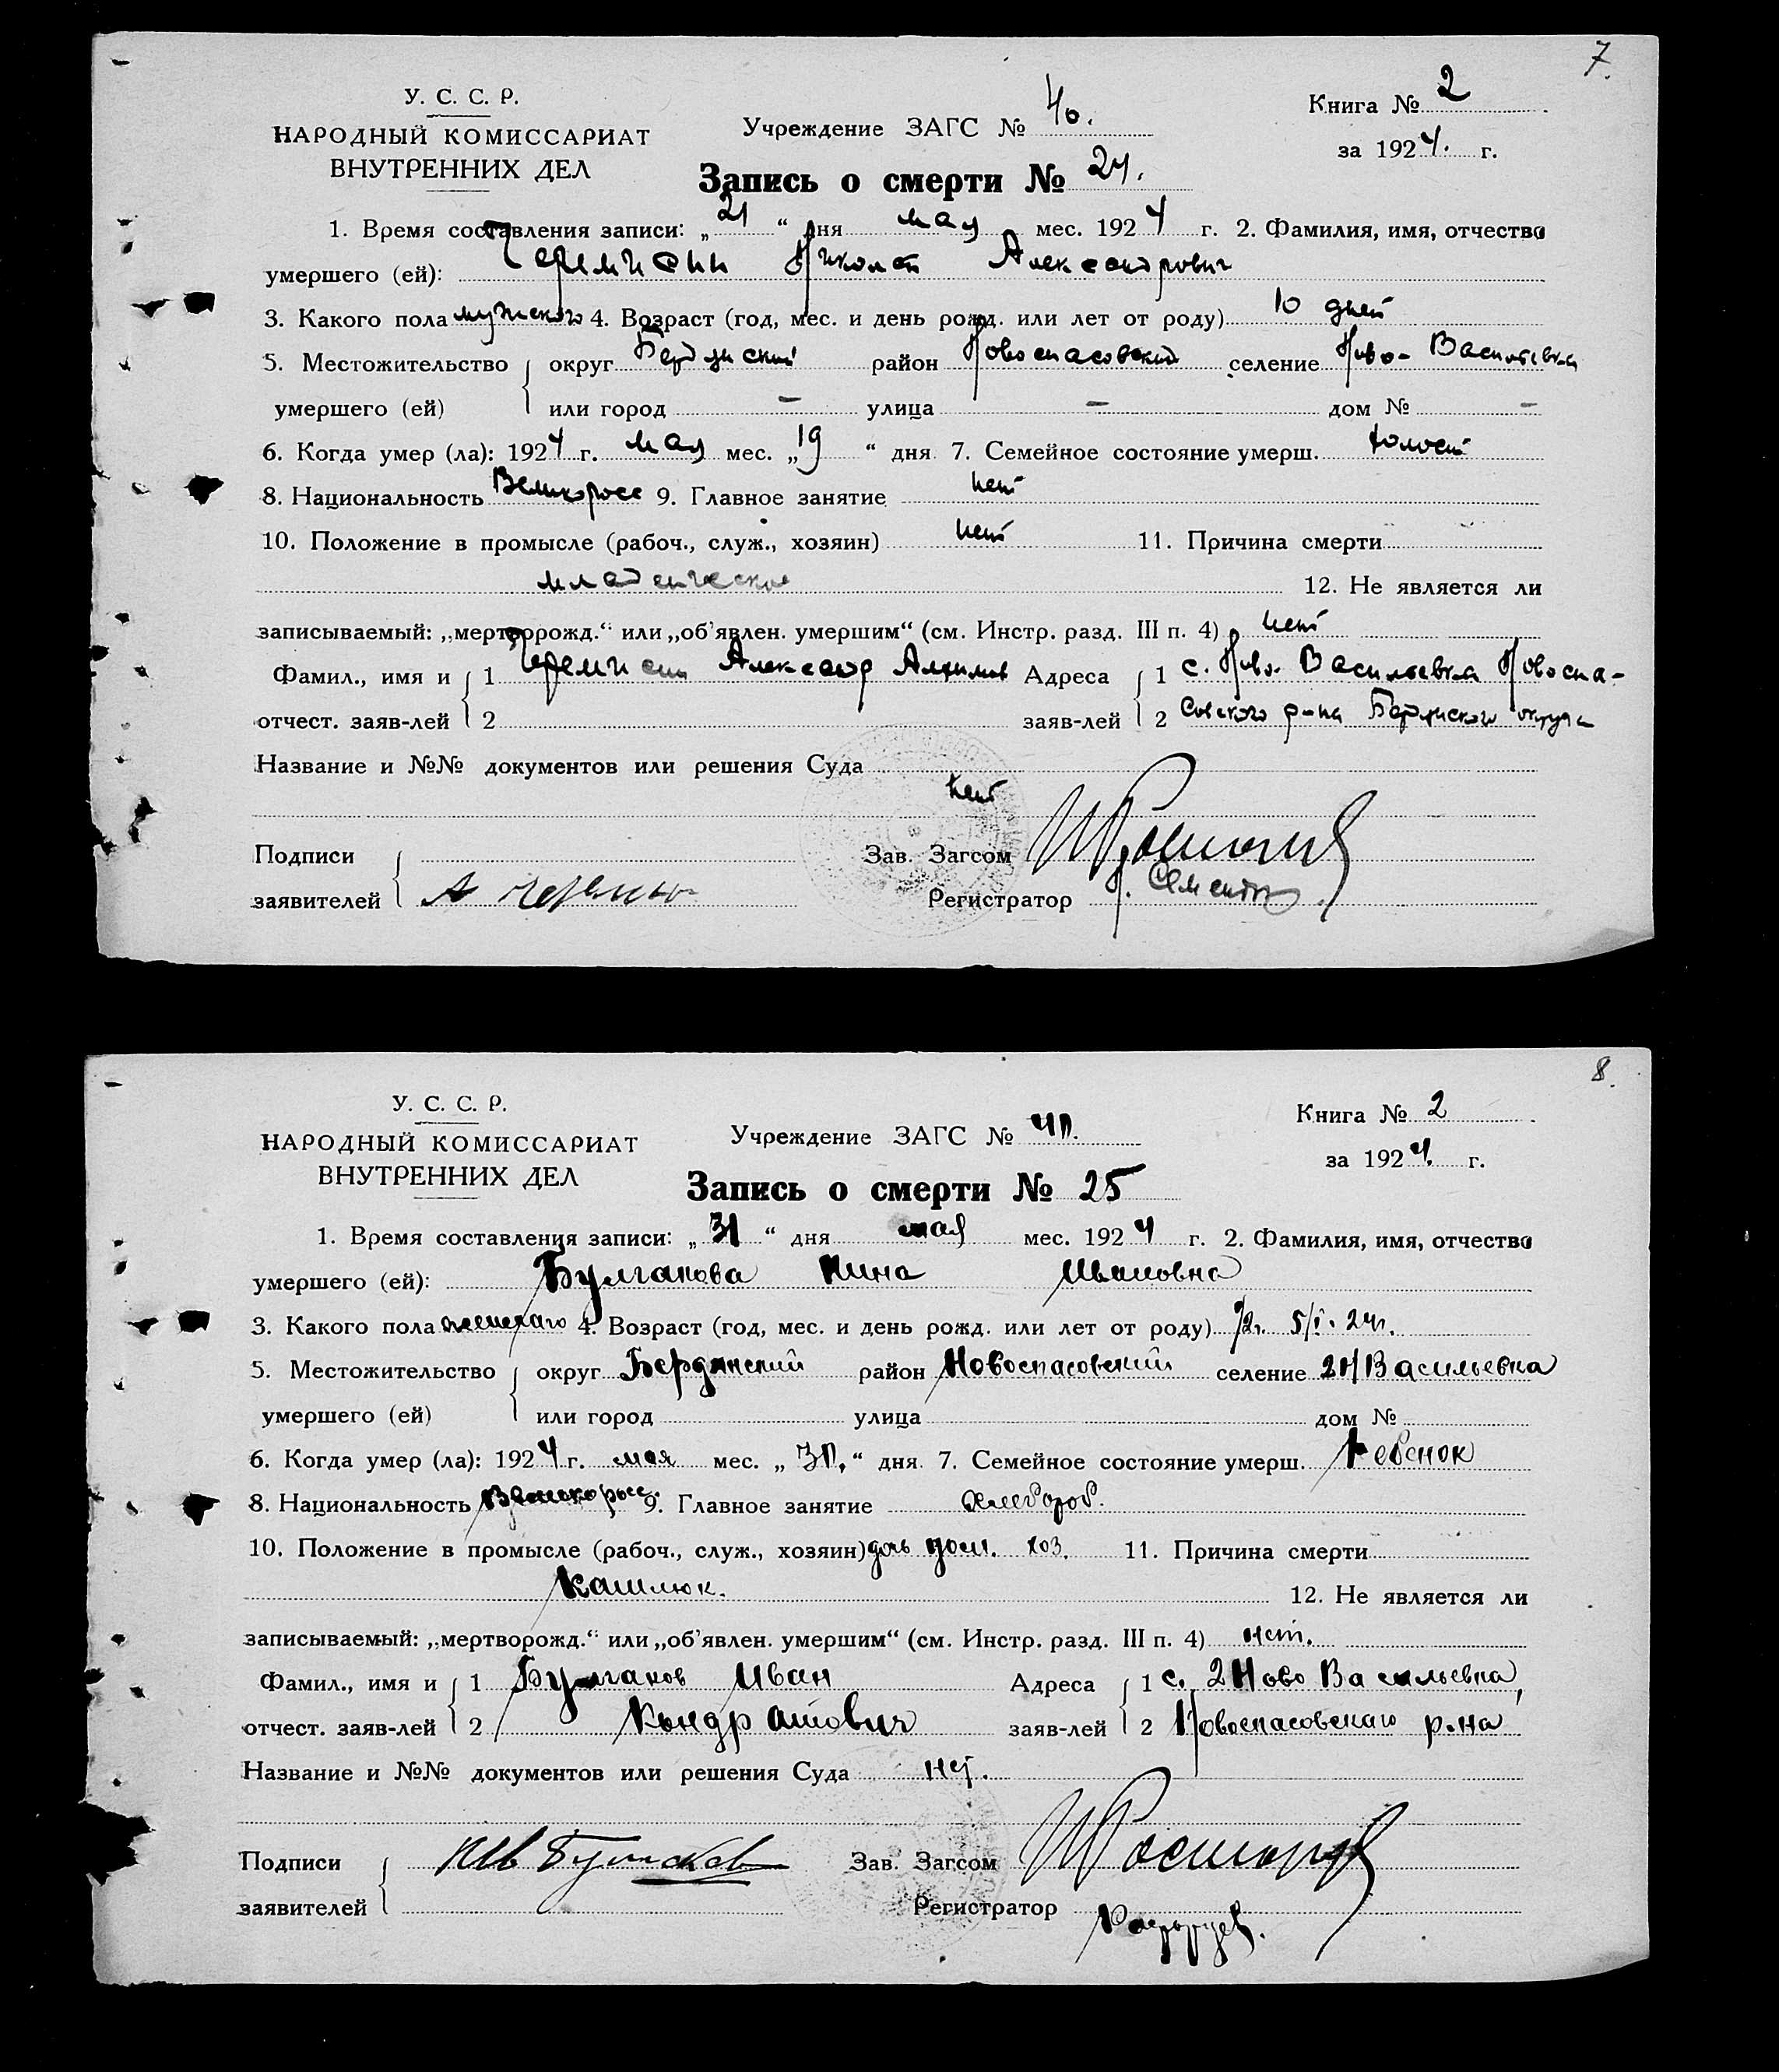 7.
У. С. С. Р.
НАРОДНЫЙ КОМИССАРИАТ
ВНУТРЕННИХ ДЕЛ
Учреждение ЗАГС № 40.
Книга № 2
за 1924. г.
Запись о смерти № 24.
1. Время составления записи: „21“ дня мая мес. 1924 г. 2. Фамилия, имя, отчество
умершего (ей): Черемисин Николай Александрович
3. Какого пола мужского 4. Возраст (год, мес. и день рожд. или лет от роду) 10 дней
5. Местожительство округ Бердянский район Новоспасовский селение Ново-Васильевка
умершего (ей) или город — улица — дом № —
6. Когда умер (ла): 1924 г. мая мес. „19“ дня 7. Семейное состояние умерш. холост
8. Национальность Великоросс 9. Главное занятие нет
10. Положение в промысле (рабоч., служ., хозяин) нет 11. Причина смерти
младенческое 12. Не является ли
записываемый: „мертворожд.“ или „об'явлен. умершим“ (см. Инстр. разд. III п. 4) нет
Фамил., имя и 1 Черемисин Александр Адреса 1 с. Ново-Васильевка Новоспа-
отчест. заяв-лей 2 заяв-лей 2 совского р-на Бердянского округа
Название и №№ документов или решения Суда
нет
Подписи Зав. Загсом
заявителей Регистратор
8.
У. С. С. Р.
НАРОДНЫЙ КОМИССАРИАТ
ВНУТРЕННИХ ДЕЛ
Учреждение ЗАГС № 40.
Книга № 2
за 1924. г.
Запись о смерти № 25
1. Время составления записи: „31“ дня мая мес. 1924 г. 2. Фамилия, имя, отчество
умершего (ей): Булгакова Нина Ивановна
3. Какого пола женскаго 4. Возраст (год, мес. и день рожд. или лет от роду) 5/I. 24г.
5. Местожительство округ Бердянский район Новоспасовский селение 2 Н/Васильевка
умершего (ей) или город улица дом №
6. Когда умер (ла): 1924 г. мая мес. „30.“ дня 7. Семейное состояние умерш. Ребенок
8. Национальность Великоросс. 9. Главное занятие хлебороб.
10. Положение в промысле (рабоч., служ., хозяин) дочь дом. хоз. 11. Причина смерти
Кашлюк. 12. Не является ли
записываемый: „мертворожд.“ или „об'явлен. умершим“ (см. Инстр. разд. III п. 4) нет.
Фамил., имя и 1 Булгаков Иван Адреса 1 с. 2 Ново Васильевка,
отчест. заяв-лей 2 Кондратович заяв-лей 2 Новоспасовскаго р-на
Название и №№ документов или решения Суда нет.
Подписи Зав. Загсом
заявителей Регистратор